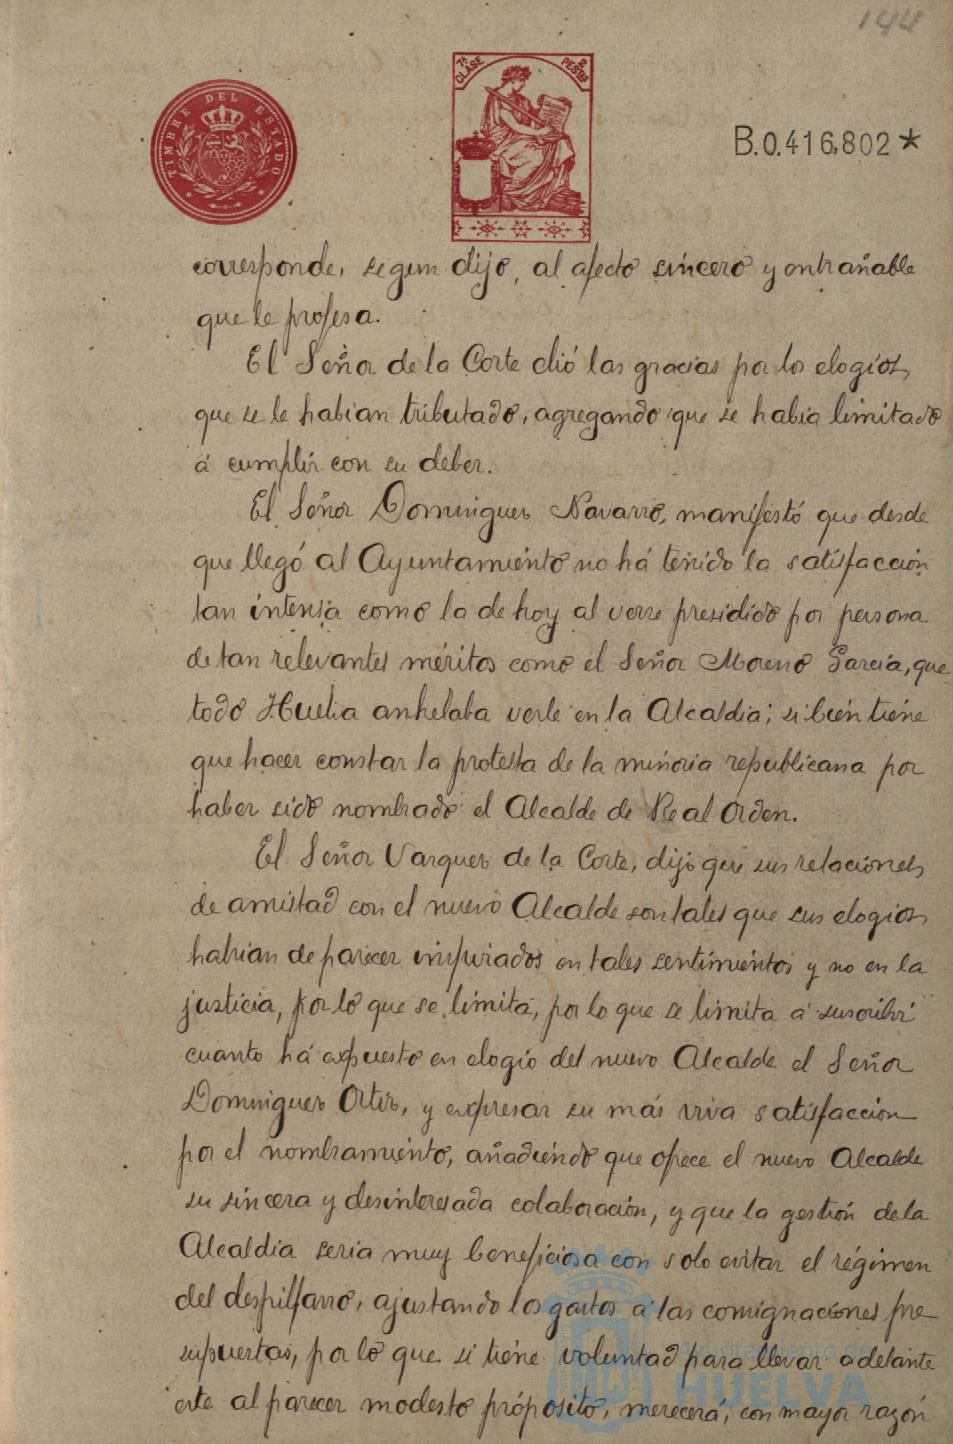 144
TIMBRE DEL ESTADO
7ª CLASE
2 PESETAS
B.0.416.802*
corresponde, segun dijo, al afecto sincero y entrañable
que le profesa.
El Señor de la Corte dió las gracias por los elogios
que se le habian tributado, agregando que se habia limitado
á cumplir con su deber.
El Señor Dominguez Navarro, manifestó que desde
que llegó al Ayuntamiento no há tenido la satisfacción
tan intensa como la de hoy al verse presidido por persona
de tan relevantes méritos como el Señor Moreno García, que
todo Huelva anhelaba verle en la Alcaldia; si bien tiene
que hacer constar la protesta de la minoria republicana por
haber sido nombrado el Alcalde de Real Orden.
El Señor Vazquez de la Corte, dijo que sus relaciones
de amistad con el nuevo Alcalde son tales que sus elogios
habrian de parecer inspirados en tales sentimientos y no en la
justicia, por lo que se limita, por lo que se limita á suscribir
cuanto há expuesto en elogio del nuevo Alcalde el Señor
Dominguez Ortiz, y expresar su más viva satisfaccion
por el nombramiento, añadiendo que ofrece el nuevo Alcalde
su sincera y desinteresada colaboración, y que la gestión de la
Alcaldia seria muy beneficiosa con solo evitar el régimen
del despilfarro, ajustando los gastos á las consignaciones pre-
supuestas, por lo que si tiene voluntad para llevar adelante
este al parecer modesto própósito, merecerá, con mayor razón
Ayuntamiento de
HUELVA